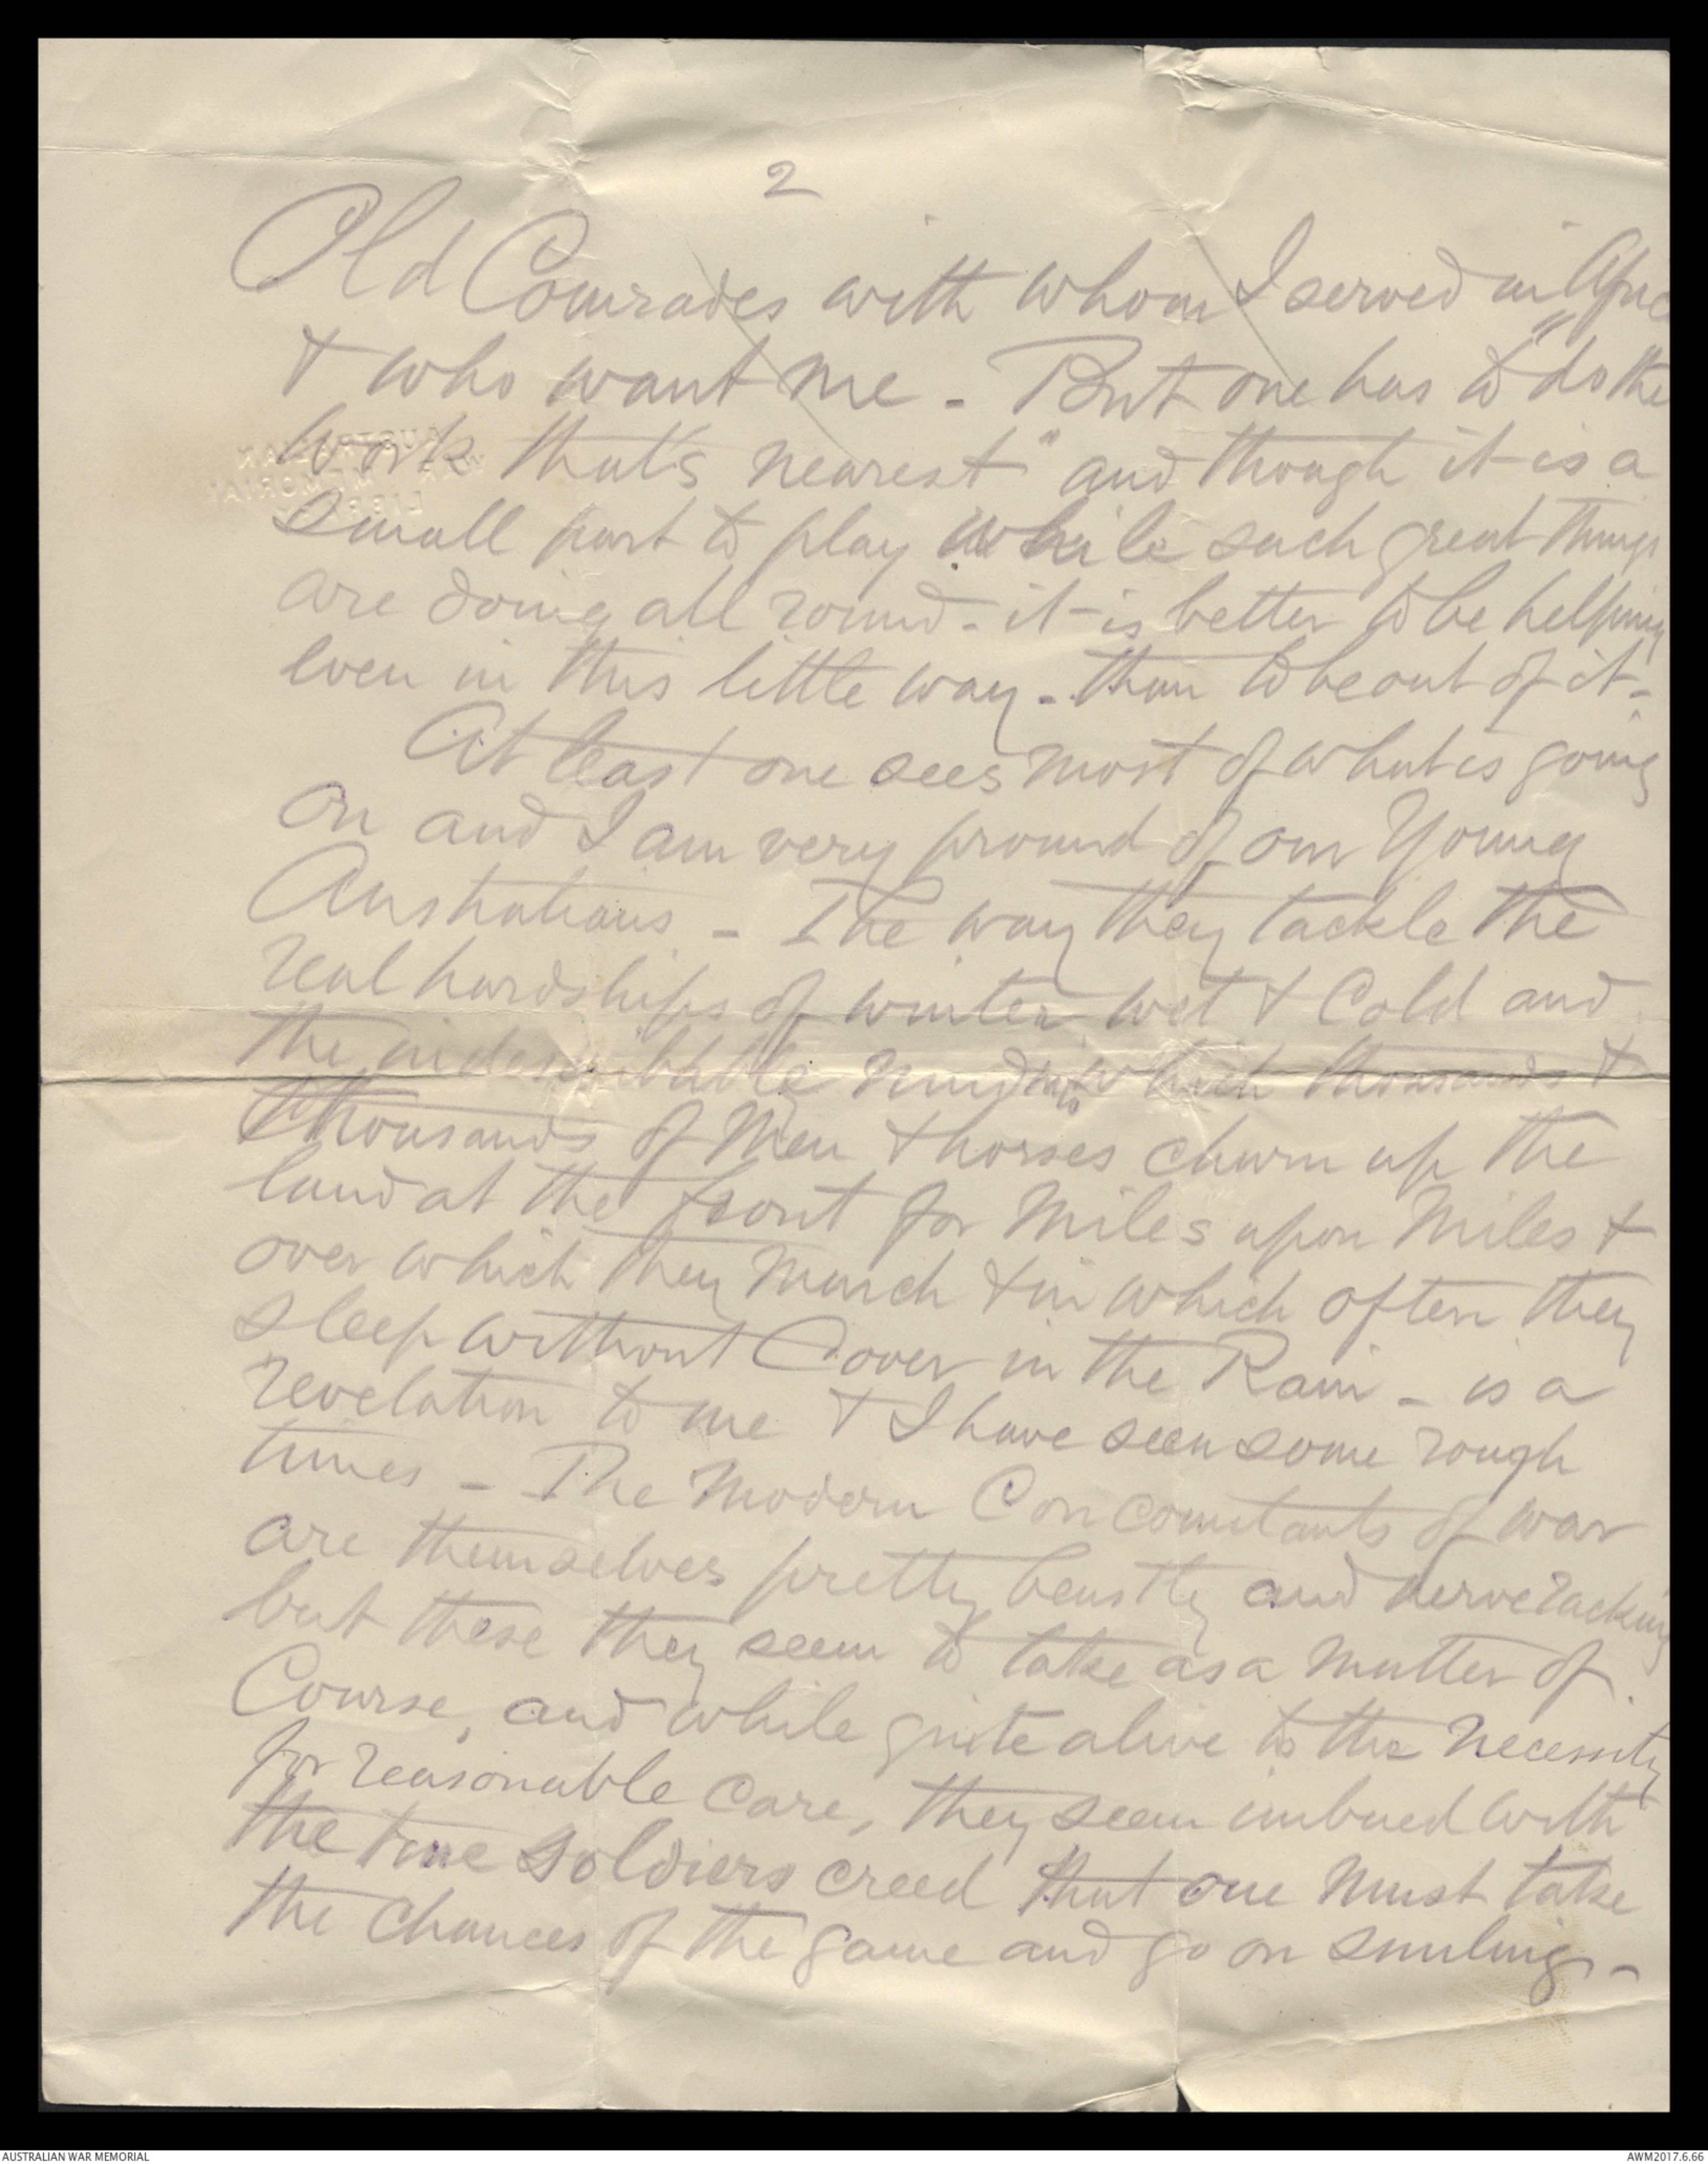 2
Old Comrades with whom I served in Afric
& who want me - But one has to "do the
work that's nearest" and though it is a
small part to play while such great things
are doing all round - it is better to be helping
even in this little way - than to be out of it -
At least one sees most of what is going
on and I am very proud of our Young
Australians - The way they tackle the
real hardships of winter wet & Cold and
the indescribable mud into which thousands &
thousands of Men & horses churn up the
land at the front for Miles upon Miles &
over which they March & in which often they
sleep without Cover in the Rain - is a
revelation to me & I have seen some rough
times - The Modern Concomitants of war
are themselves pretty beastly and nerveracking
but these they seem to take as a Matter of
Course, and while quite alive to the necessity
for reasonable care, they seem imbued with
the true soldiers creed that one Must take
the chances of the game and go on smiling -
AUSTRALIAN
WAR MEMORIAL
LIBRARY
AUSTRALIAN WAR MEMORIAL
AWM2017.6.66